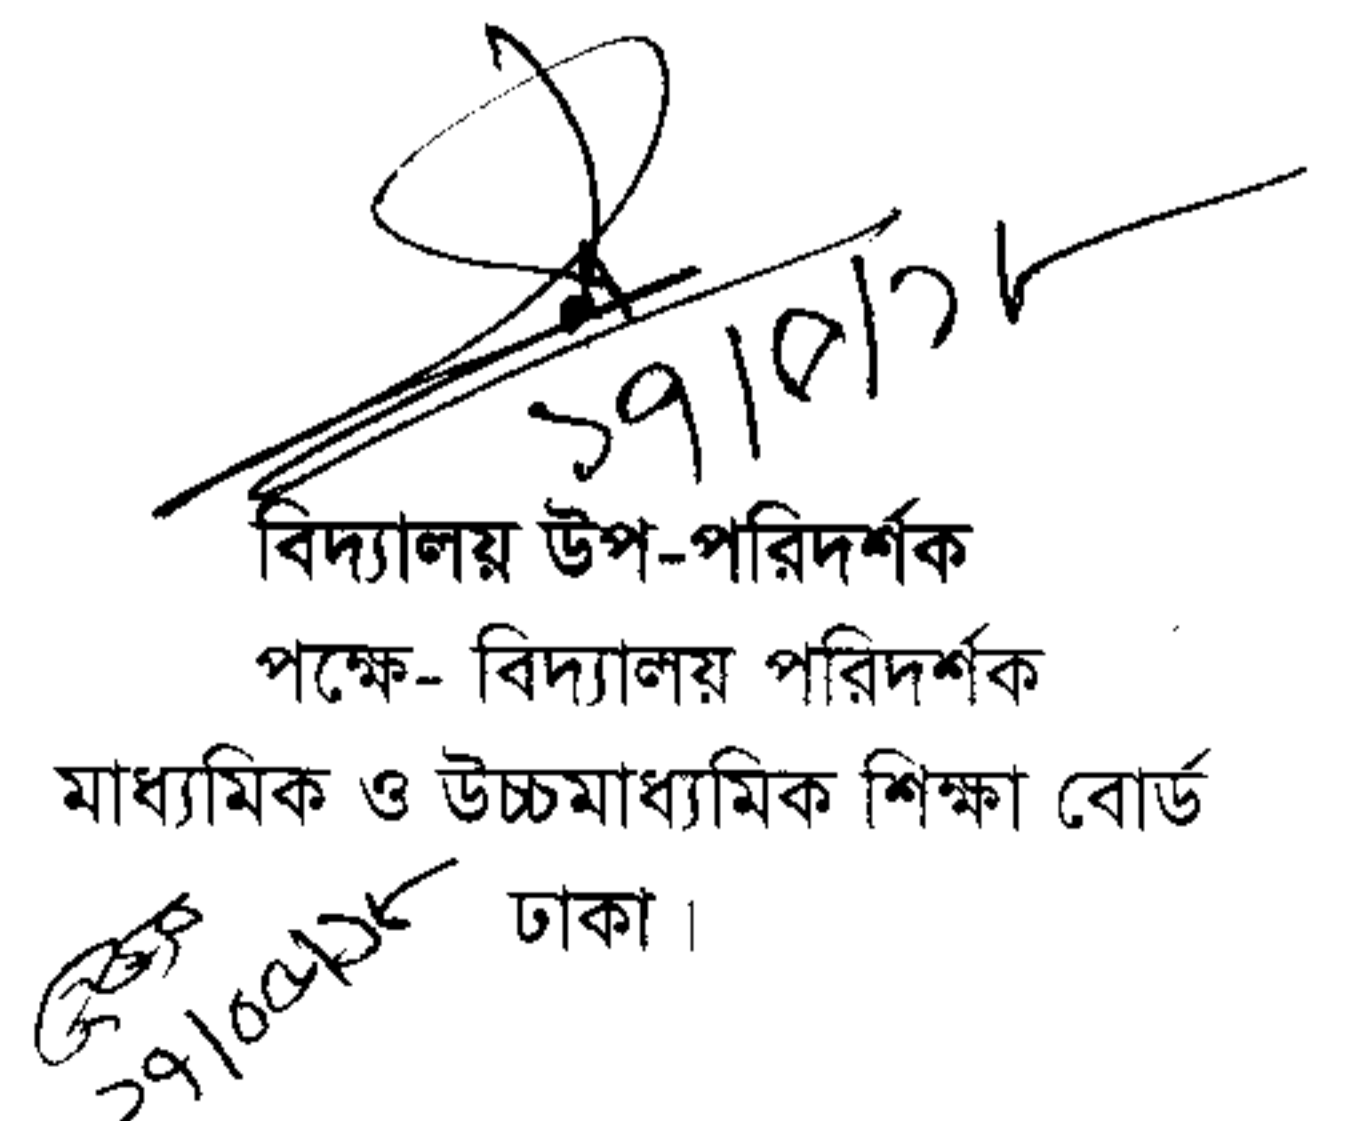 ১৭/৫/১৮
বিদ্যালয় উপ-পরিদর্শক
পক্ষে- বিদ্যালয় পরিদর্শক
মাধ্যমিক ও উচ্চমাধ্যমিক শিক্ষা বোর্ড
ঢাকা।
১৭/০৫/১৮